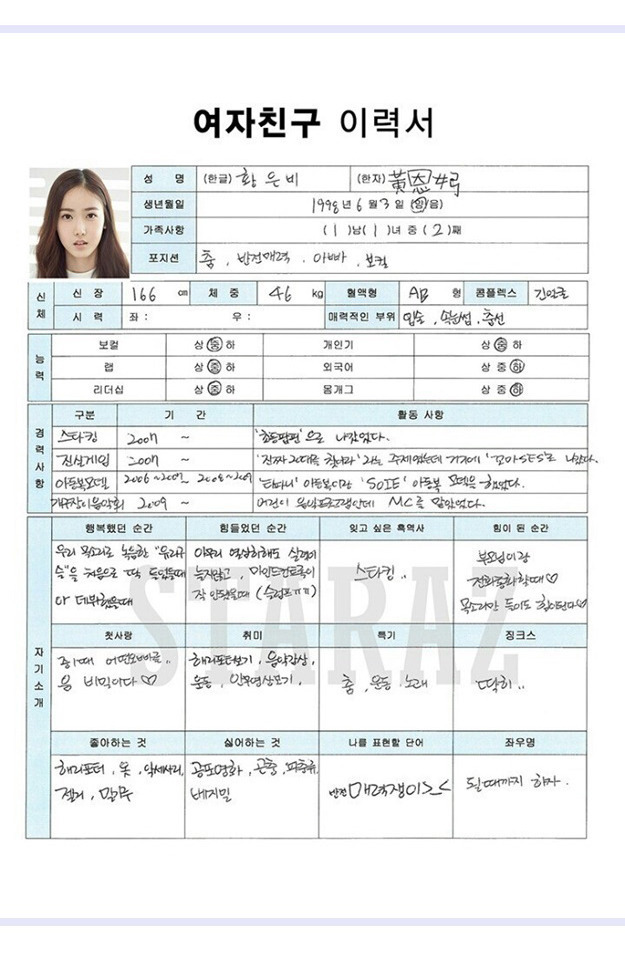 여자친구 이력서
성 명 (한글) 황 은 비 (한자) 黃 恩
생년월일 1998년 6월 3일 (양)(음)
가족사항 (1)남(1)녀 중 (2)째
포지션 춤, 반전매력, 아빠, 보컬
신체
신 장 166 cm 체 중 46 kg 혈액형 AB 형 콤플렉스 긴얼굴
시 력 좌: 우: 매력적인 부위 입술, 춤선
능력
보컬 상 중 하 개인기 상 중 하
랩 상 중 하 외국어 상 중 하
리더십 상 중 하 몸개그 상 중 하
경력사항
구분 기 간 활동 사항
스타킹 2007 ~ 으로 나갔었다.
진실게임 2007 ~ '진짜 20대를 찾아라' 라는 주제였는데 거기에 '꼬마SES'로 나갔다.
아동복모델 2006~2007, 2008~2009 아동복이랑 'SOIE' 아동복 모델을 했었다.
2009 ~ 어린이 MC를 맡았었다.
자기소개
행복했던 순간 힘들었던 순간 잊고 싶은 흑역사 힘이 된 순간
우리 목소리로 녹음한 "유리구
슬"을 처음으로 딱 들었을때
아 데뷔했을때
아무리 열심히해도 실력이
늘지않고, 마인드컨트롤이
잘 안됐을때 (슬럼프ㅠㅠ)
스타킹..
부모님이랑
전화통화할때♡
목소리만 들어도 힘이된다♡
첫사랑 취미 특기 징크스
중1때 어떤오빠를..
음 비밀이다♡
해리포터보기, 음악감상,
운동, 안무영상보기,
춤, 운동, 노래
딱히..
좋아하는 것 싫어하는 것 나를 표현할 단어 좌우명
해리포터, 옷, 악세사리,
젤리, 만두
공포영화, 곤충, 파충류,
베지밀
반전매력쟁이>_<
될때까지 하자.
STARAZ